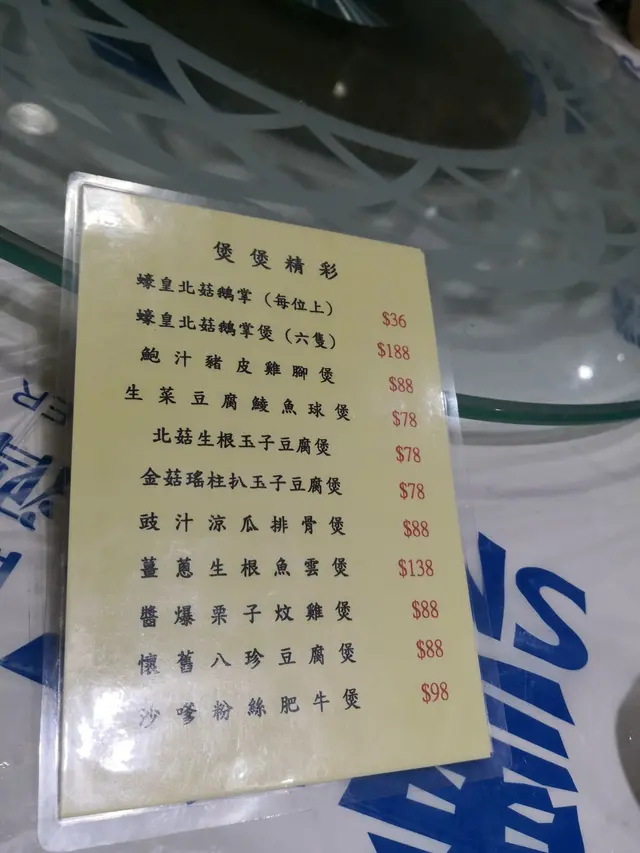 煲煲精彩
蠔皇北菇鵝掌（每位上） $36
蠔皇北菇鵝掌煲（六隻） $188
鮑汁豬皮雞腳煲 $88
生菜豆腐鯪魚球煲 $78
北菇生根玉子豆腐煲 $78
金菇瑤柱扒玉子豆腐煲 $78
豉汁涼瓜排骨煲 $88
薑蔥生根魚雲煲 $138
醬爆栗子炆雞煲 $88
懷舊八珍豆腐煲 $88
沙嗲粉絲肥牛煲 $98